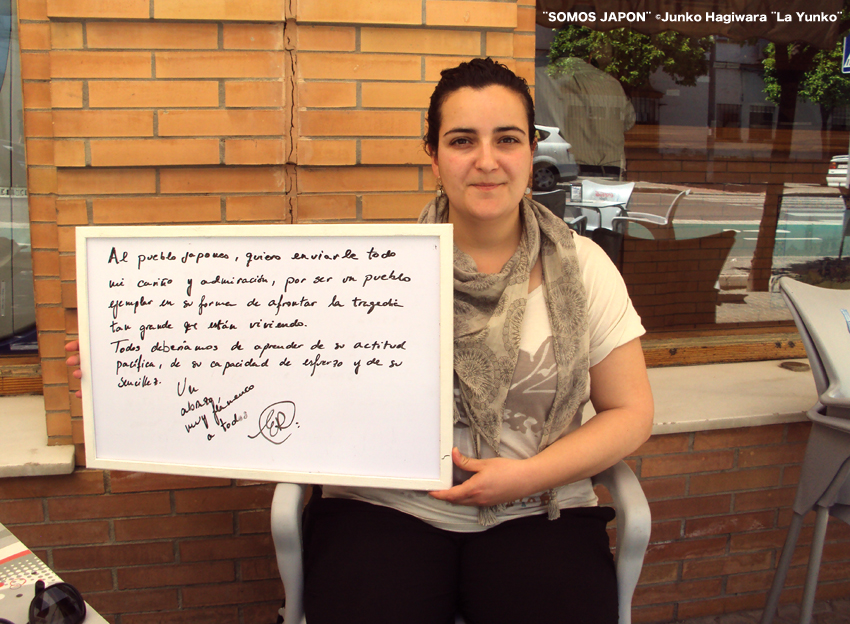 ¨SOMOS JAPON¨ ©Junko Hagiwara ¨La Yunko¨
Al pueblo Japones, quiero enviarle todo
mi cariño y admiración, por ser un pueblo
ejemplar en su forma de afrontar la tragedia
tan grande qe están viviendo.
Todos deberíamos de aprender de su actitud
pacífica, de su capacidad de esfuerzo y de su
sencillez.
Un
abrazo
muy flamenco
a todos